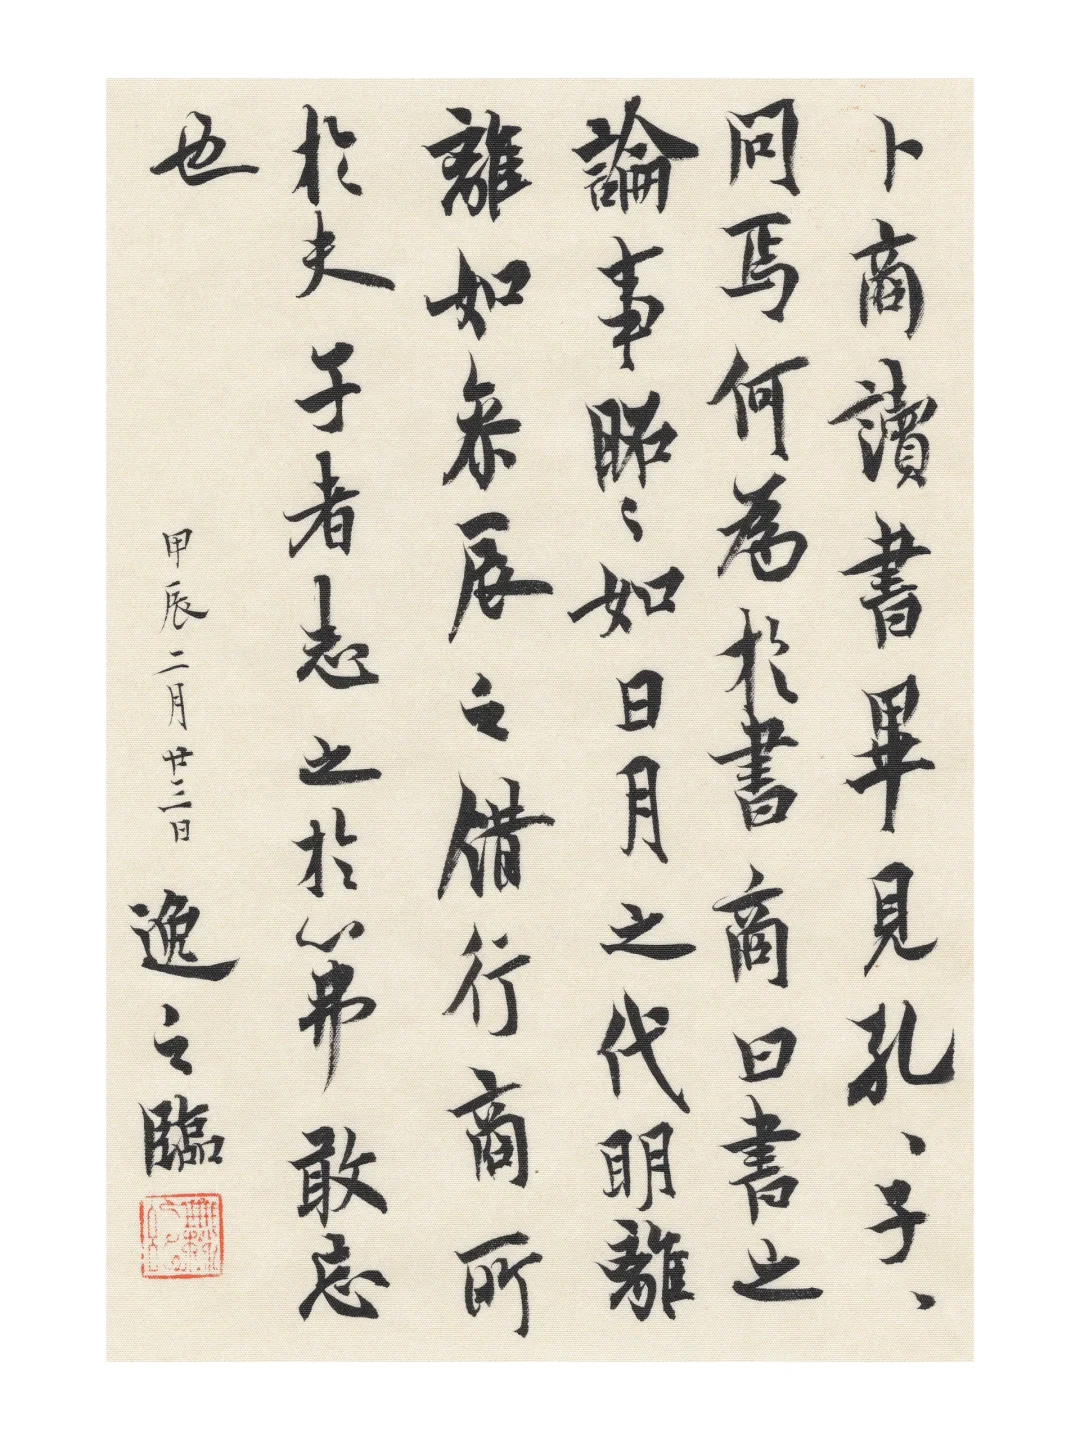 卜商讀書畢見孔、子、
問焉何為於書商曰書之
論事昭〻如日月之代明離
離如參辰之錯行商所
於夫子者志之於心弗敢忘
也
甲辰二月廿三日 逸之臨